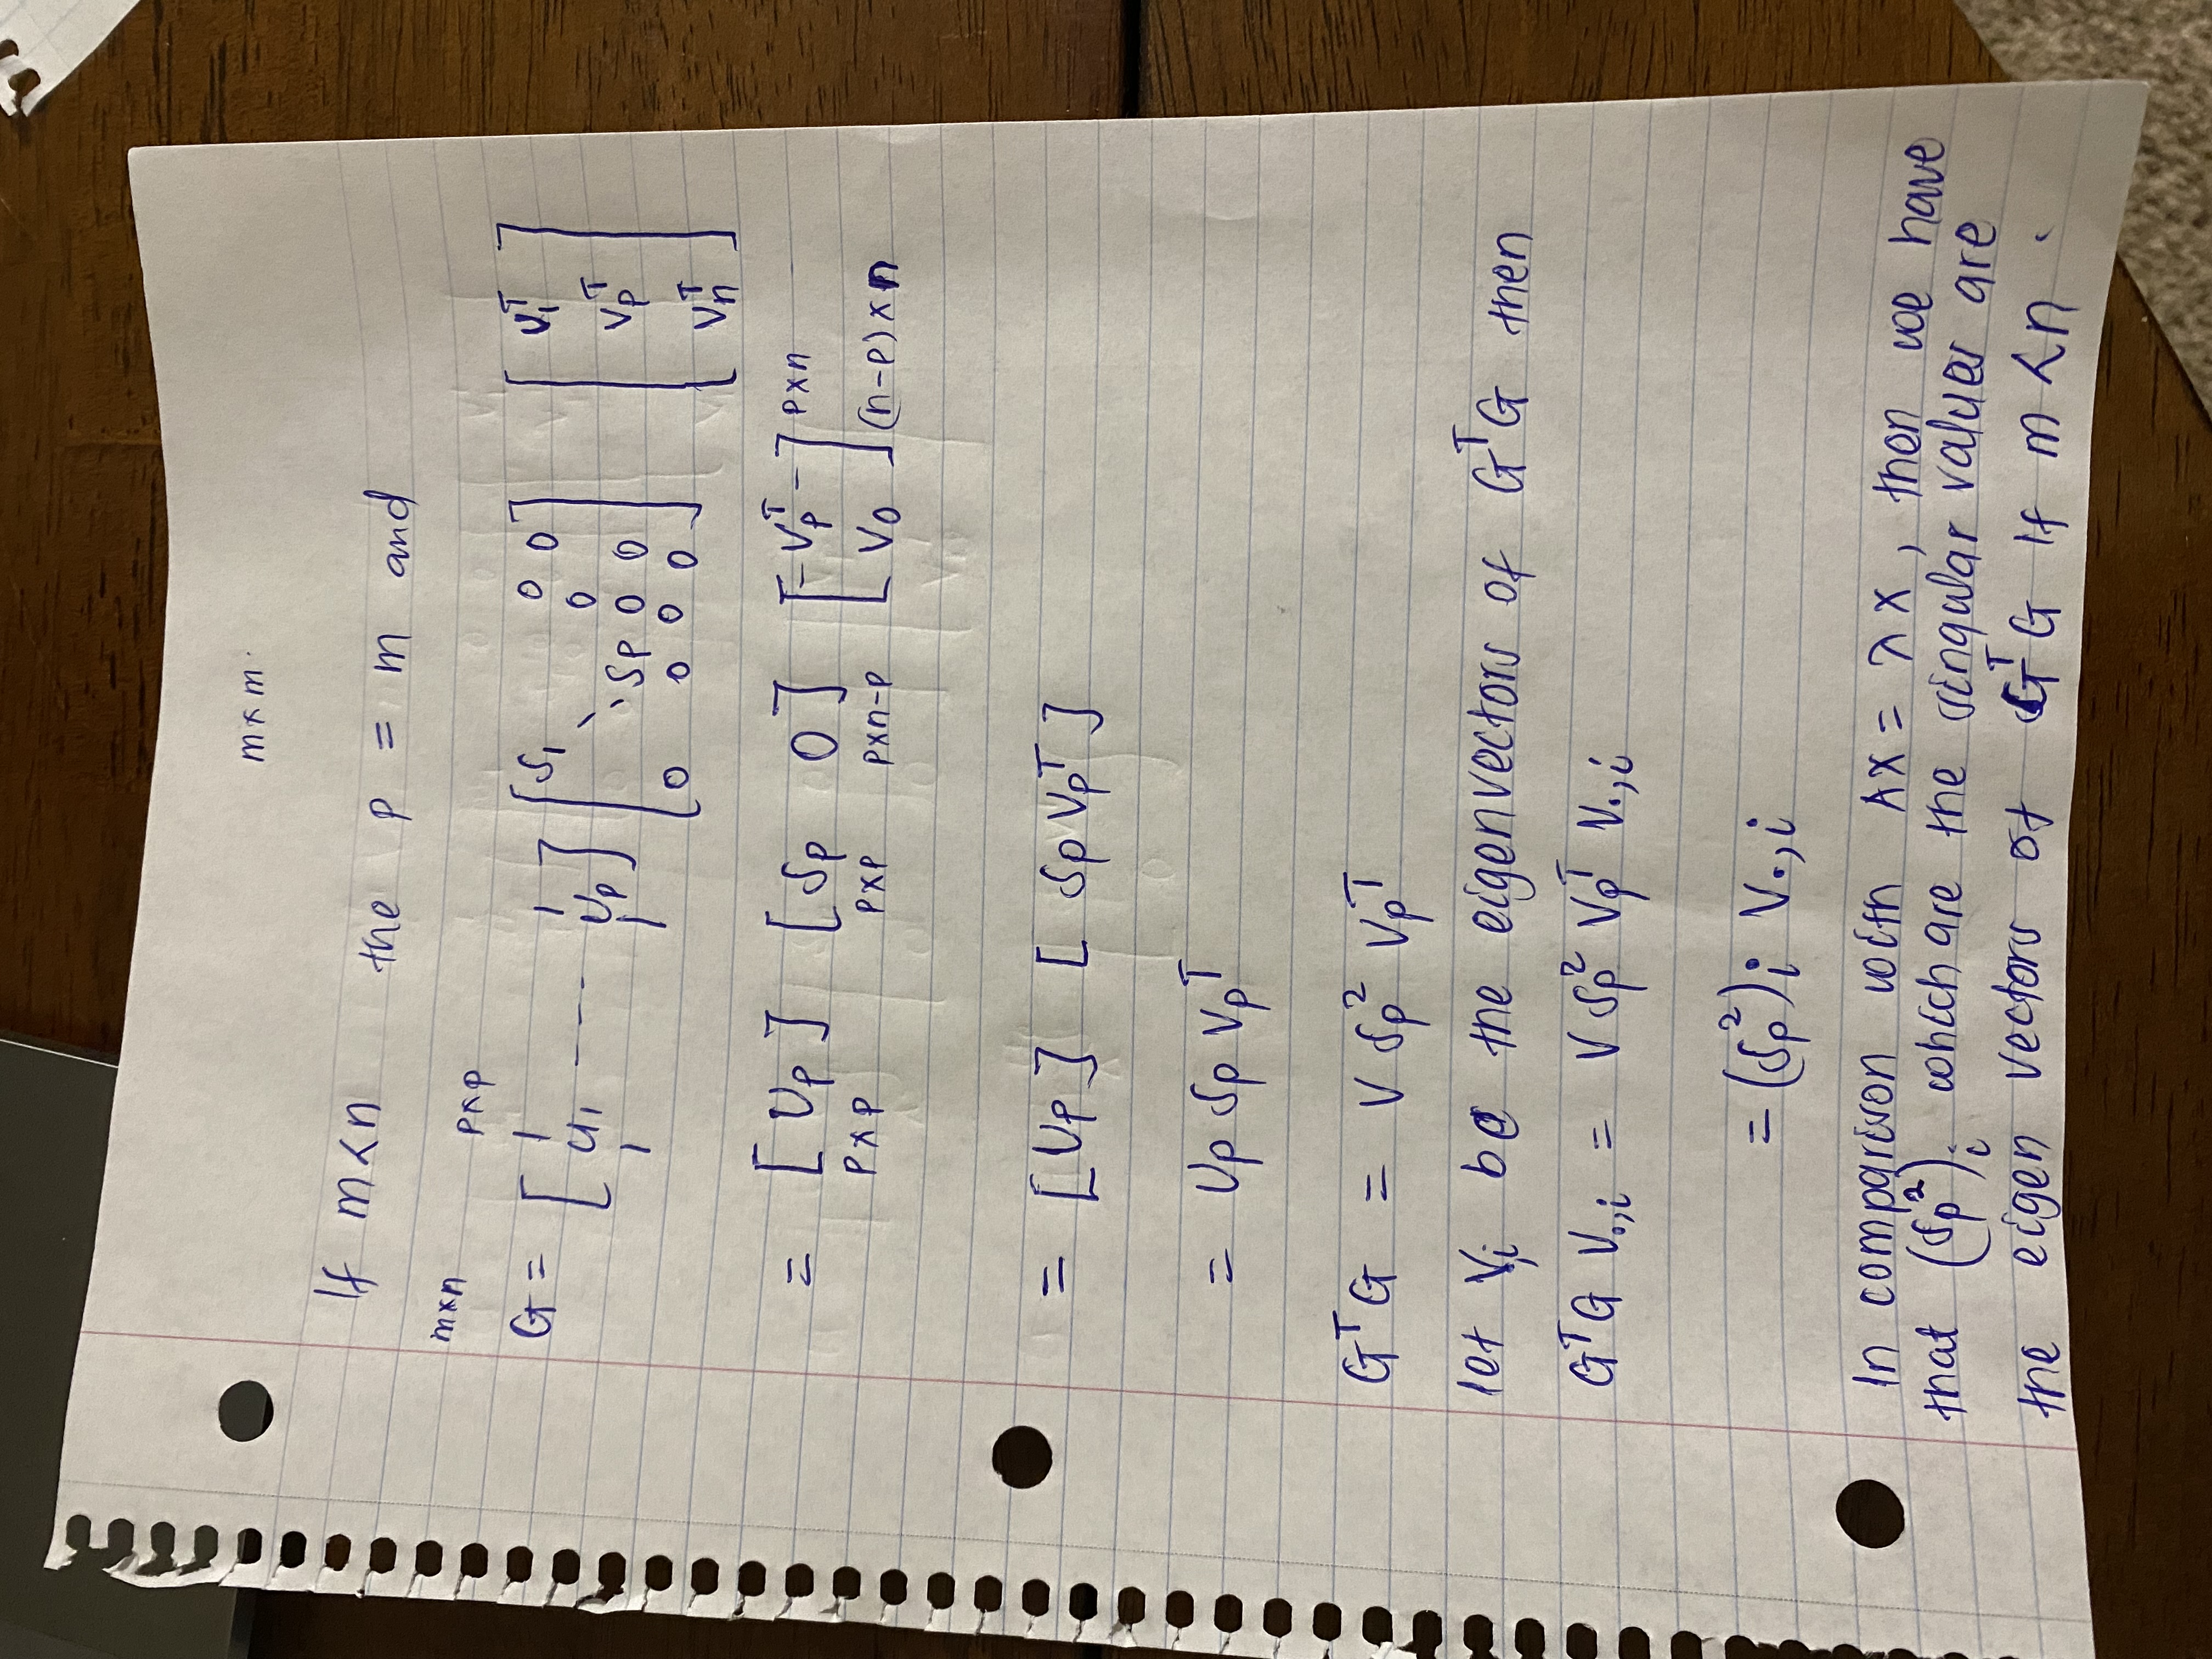 m×m
If m<n the p = m and
m×n p×p
G = [ | u₁ | - - - | Up | ] [ S₁ 0 0 0 Sp 0 0 0 0 0 0 ] [ V₁ᵀ Vpᵀ Vnᵀ ]
= [ Up ] [ Sp 0 ] [ -Vpᵀ- V₀ ] p×n
p×p p×p p×n-p (n-p)×n
= [Up] [ Sp Vpᵀ ]
= Up Sp Vpᵀ
GᵀG = V Sp² Vpᵀ
let V.,i be the eigenvectors of GᵀG then
GᵀG V.,i = V Sp² Vpᵀ V.,i
= (Sp²)i V.,i
In comparison with AX = λX, then we have
that (Sp²)i which are the singular values are
the eigen vectors of GᵀG If m<n .